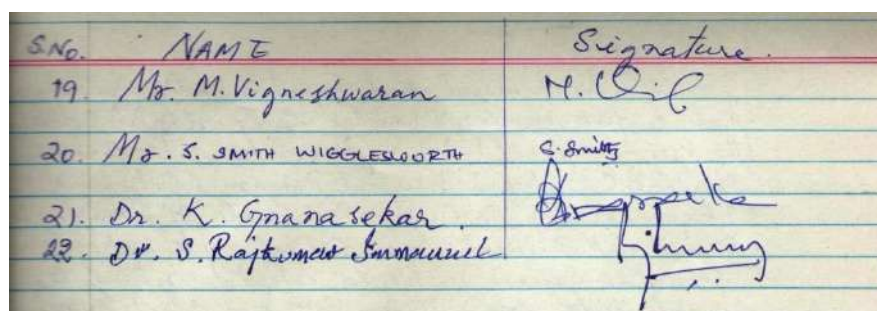 S.No. NAME Signature.
19. Mr. M. Vigneshwaran
20. Mr. S. SMITH WIGGLESWORTH S. Smith
21. Dr. K. Gnanasekar.
22. Dr. S. Rajkumar Immanuel